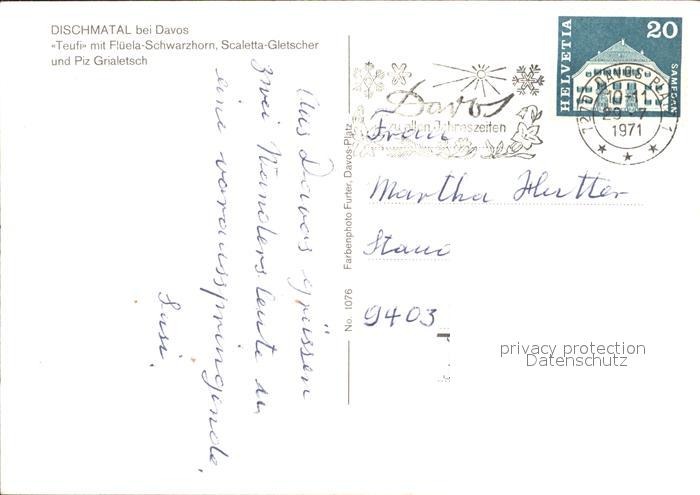 DISCHMATAL bei Davos
«Teufi» mit Flüela-Schwarzhorn, Scaletta-Gletscher
und Piz Grialetsch
Aus Davos grüssen
zwei Wandersleute u
eine vorausspringende
Susi.
No. 1076 Farbenphoto Furter, Davos-Platz
HELVETIA
20
SAMEDAN
Davos
zu allen Jahreszeiten
7270 DAVOS PLATZ 1
10-11
29.-7
1971
Frau
Martha Hutter
9403
privacy protection
Datenschutz